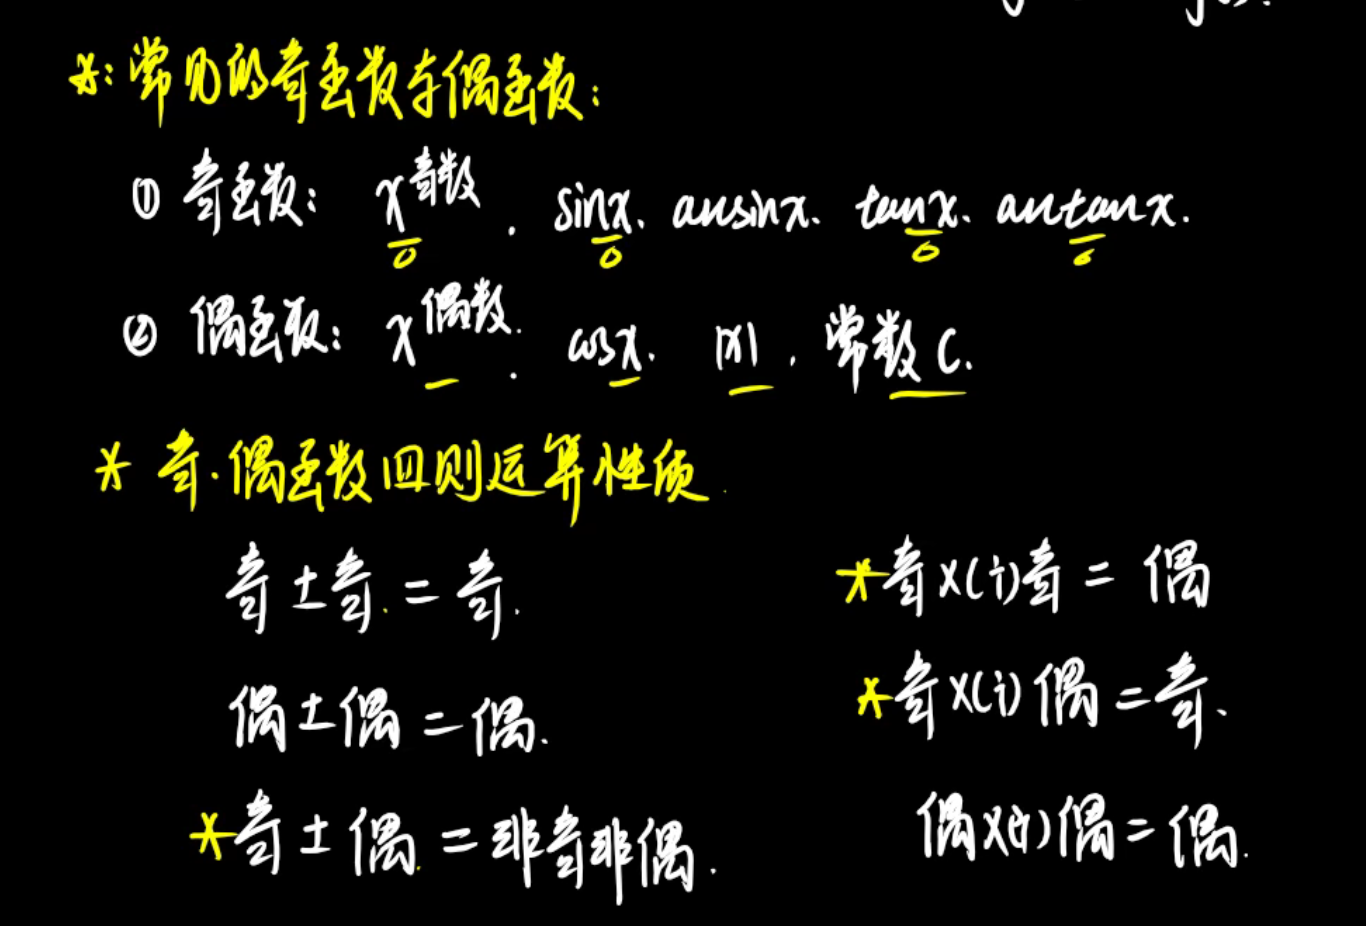 *: 常见的奇函数与偶函数:
① 奇函数: x^奇数. sinx、arcsinx、tanx、arctanx.
② 偶函数: x^偶数. cosx. |x|. 常数C.
* 奇.偶函数四则运算性质.
奇±奇.=奇.
*奇×(÷)奇=偶
偶±偶=偶.
*奇×(÷)偶=奇.
*奇±偶.=非奇非偶.
偶×(÷)偶=偶.